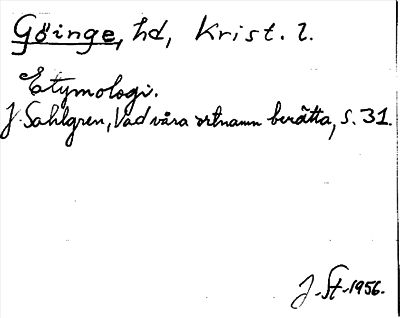 Göinge, hd, Krist. l.
Etymologi.
J. Sahlgren, Vad våra ortnamn berätta, s. 31.
J. St. 1956.